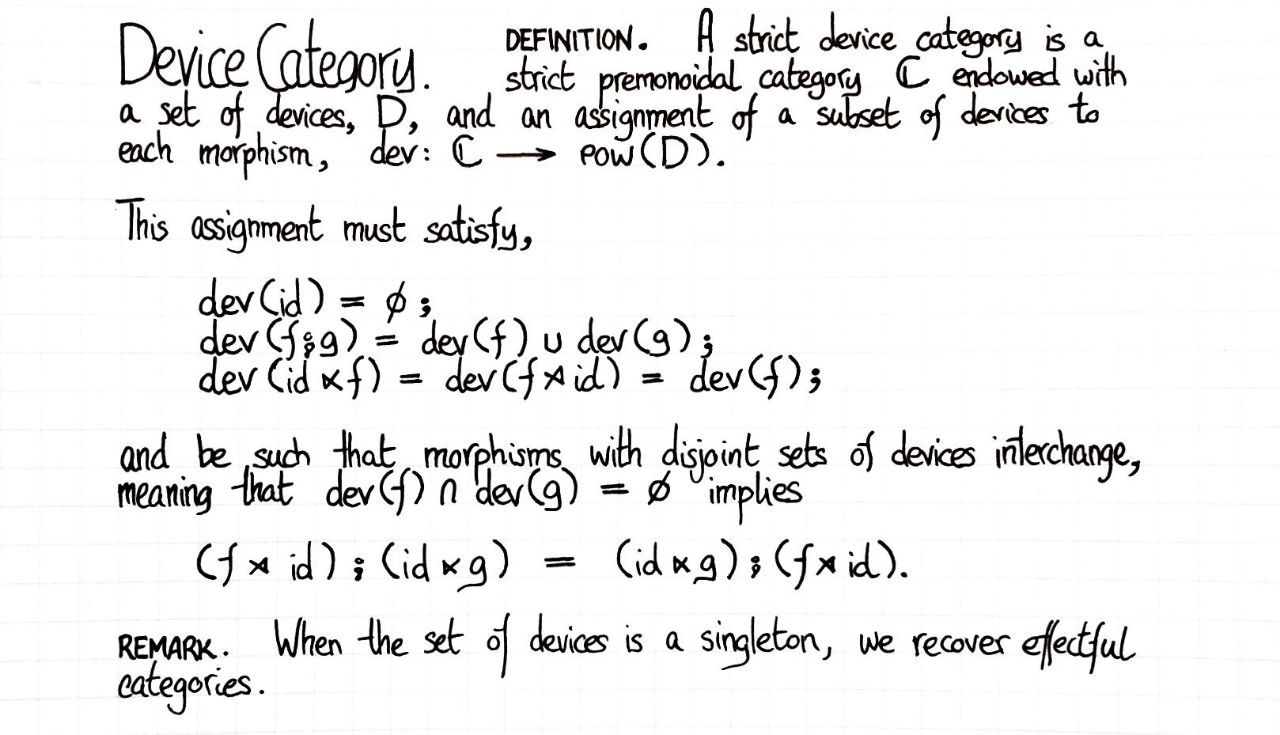 Device Category. DEFINITION. A strict device category is a
strict premonoidal category ℂ endowed with
a set of devices, D, and an assignment of a subset of devices to
each morphism, dev: ℂ ⟶ POW(D).
This assignment must satisfy,
dev(id) = ∅;
dev(f⨾g) = dev(f) ∪ dev(g);
dev(id ⋉ f) = dev(f ⋊ id) = dev(f);
and be such that morphisms with disjoint sets of devices interchange,
meaning that dev(f) ∩ dev(g) = ∅ implies
(f ⋊ id)⨾(id ⋉ g) = (id ⋉ g)⨾(f ⋊ id).
REMARK. When the set of devices is a singleton, we recover effectful
categories.